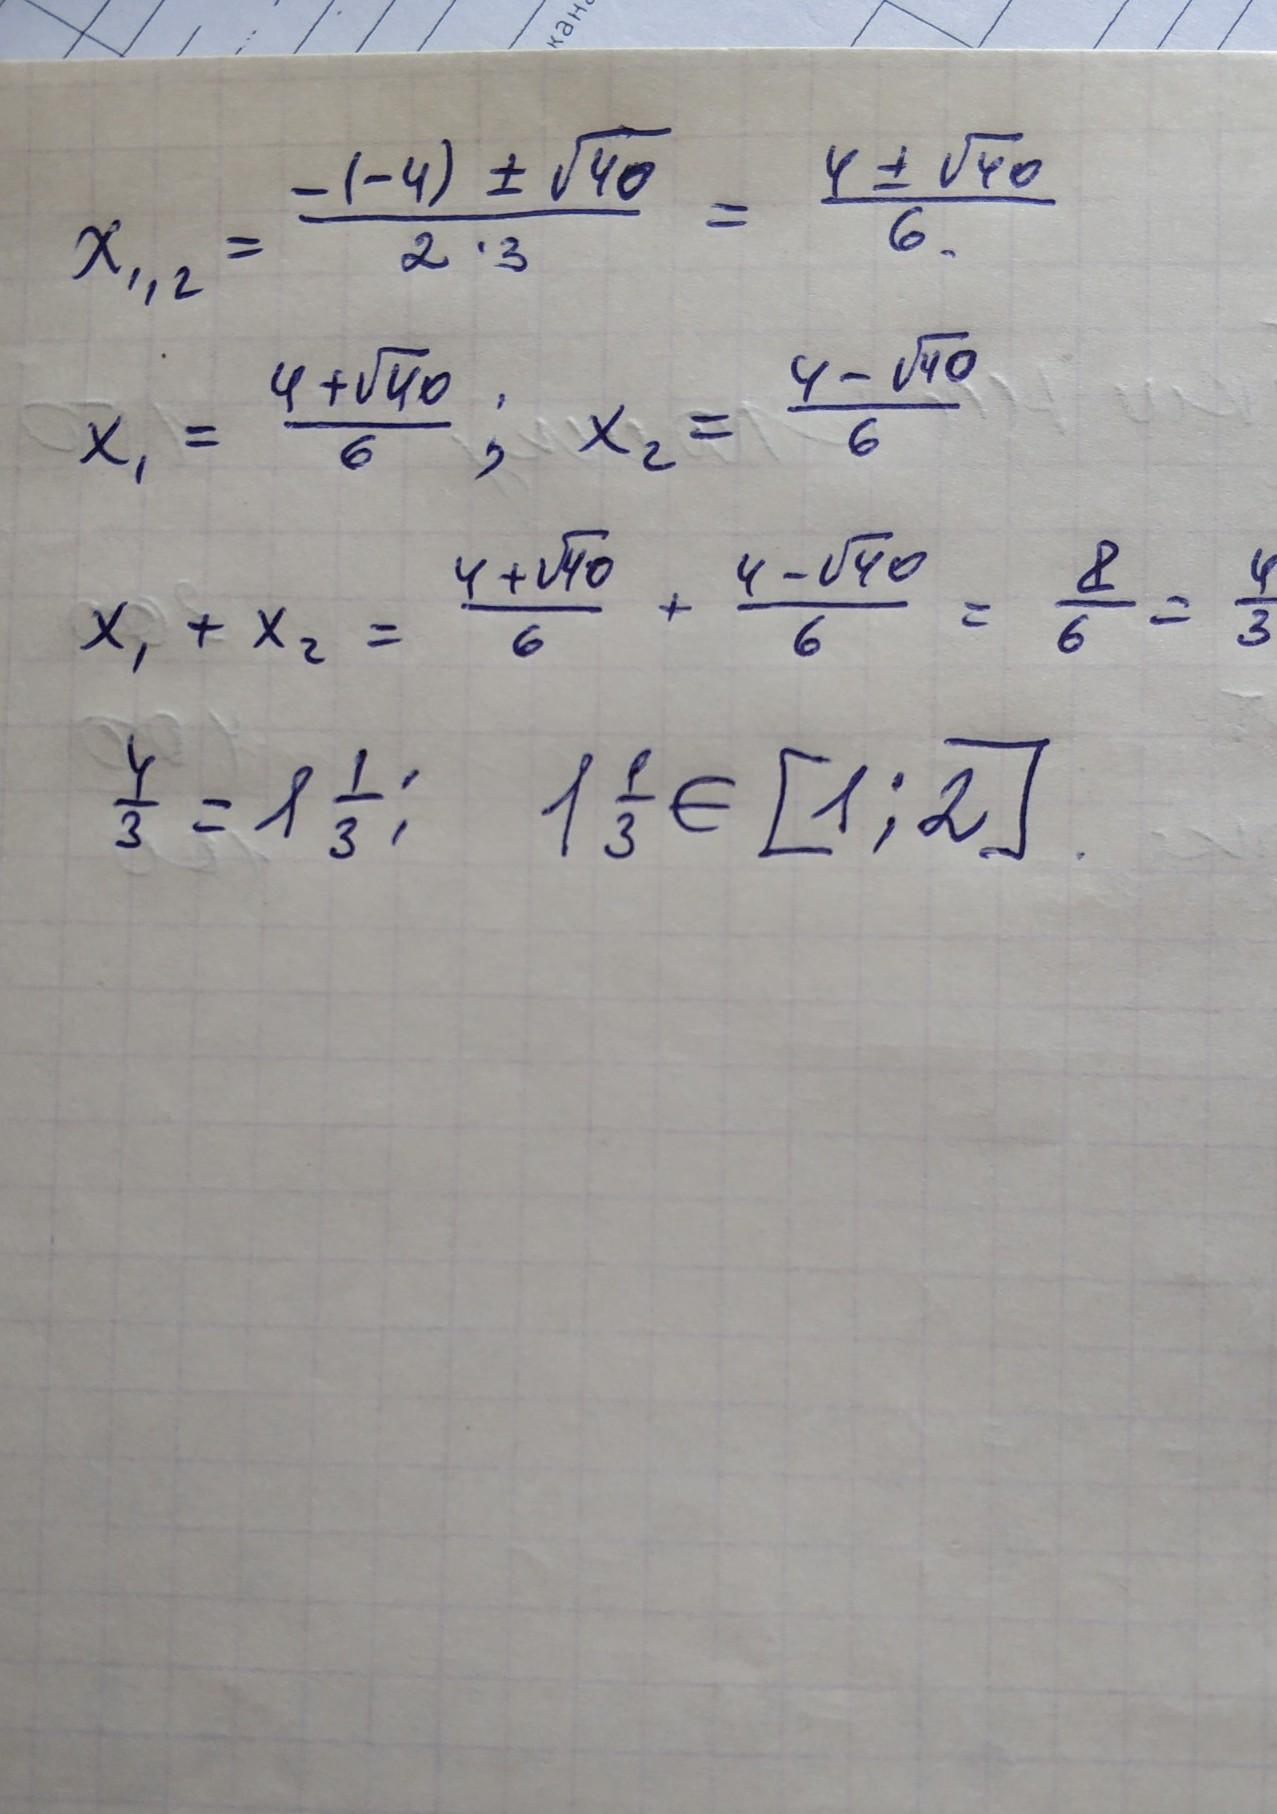 кана
x₁,₂ = (-(-4) ± √40)/(2·3) = (4 ± √40)/6.
x₁ = (4+√40)/6; x₂ = (4-√40)/6
x₁ + x₂ = (4+√40)/6 + (4-√40)/6 = 8/6 = 4/3
4/3 = 1 1/3; 1 1/3 ∈ [1;2].